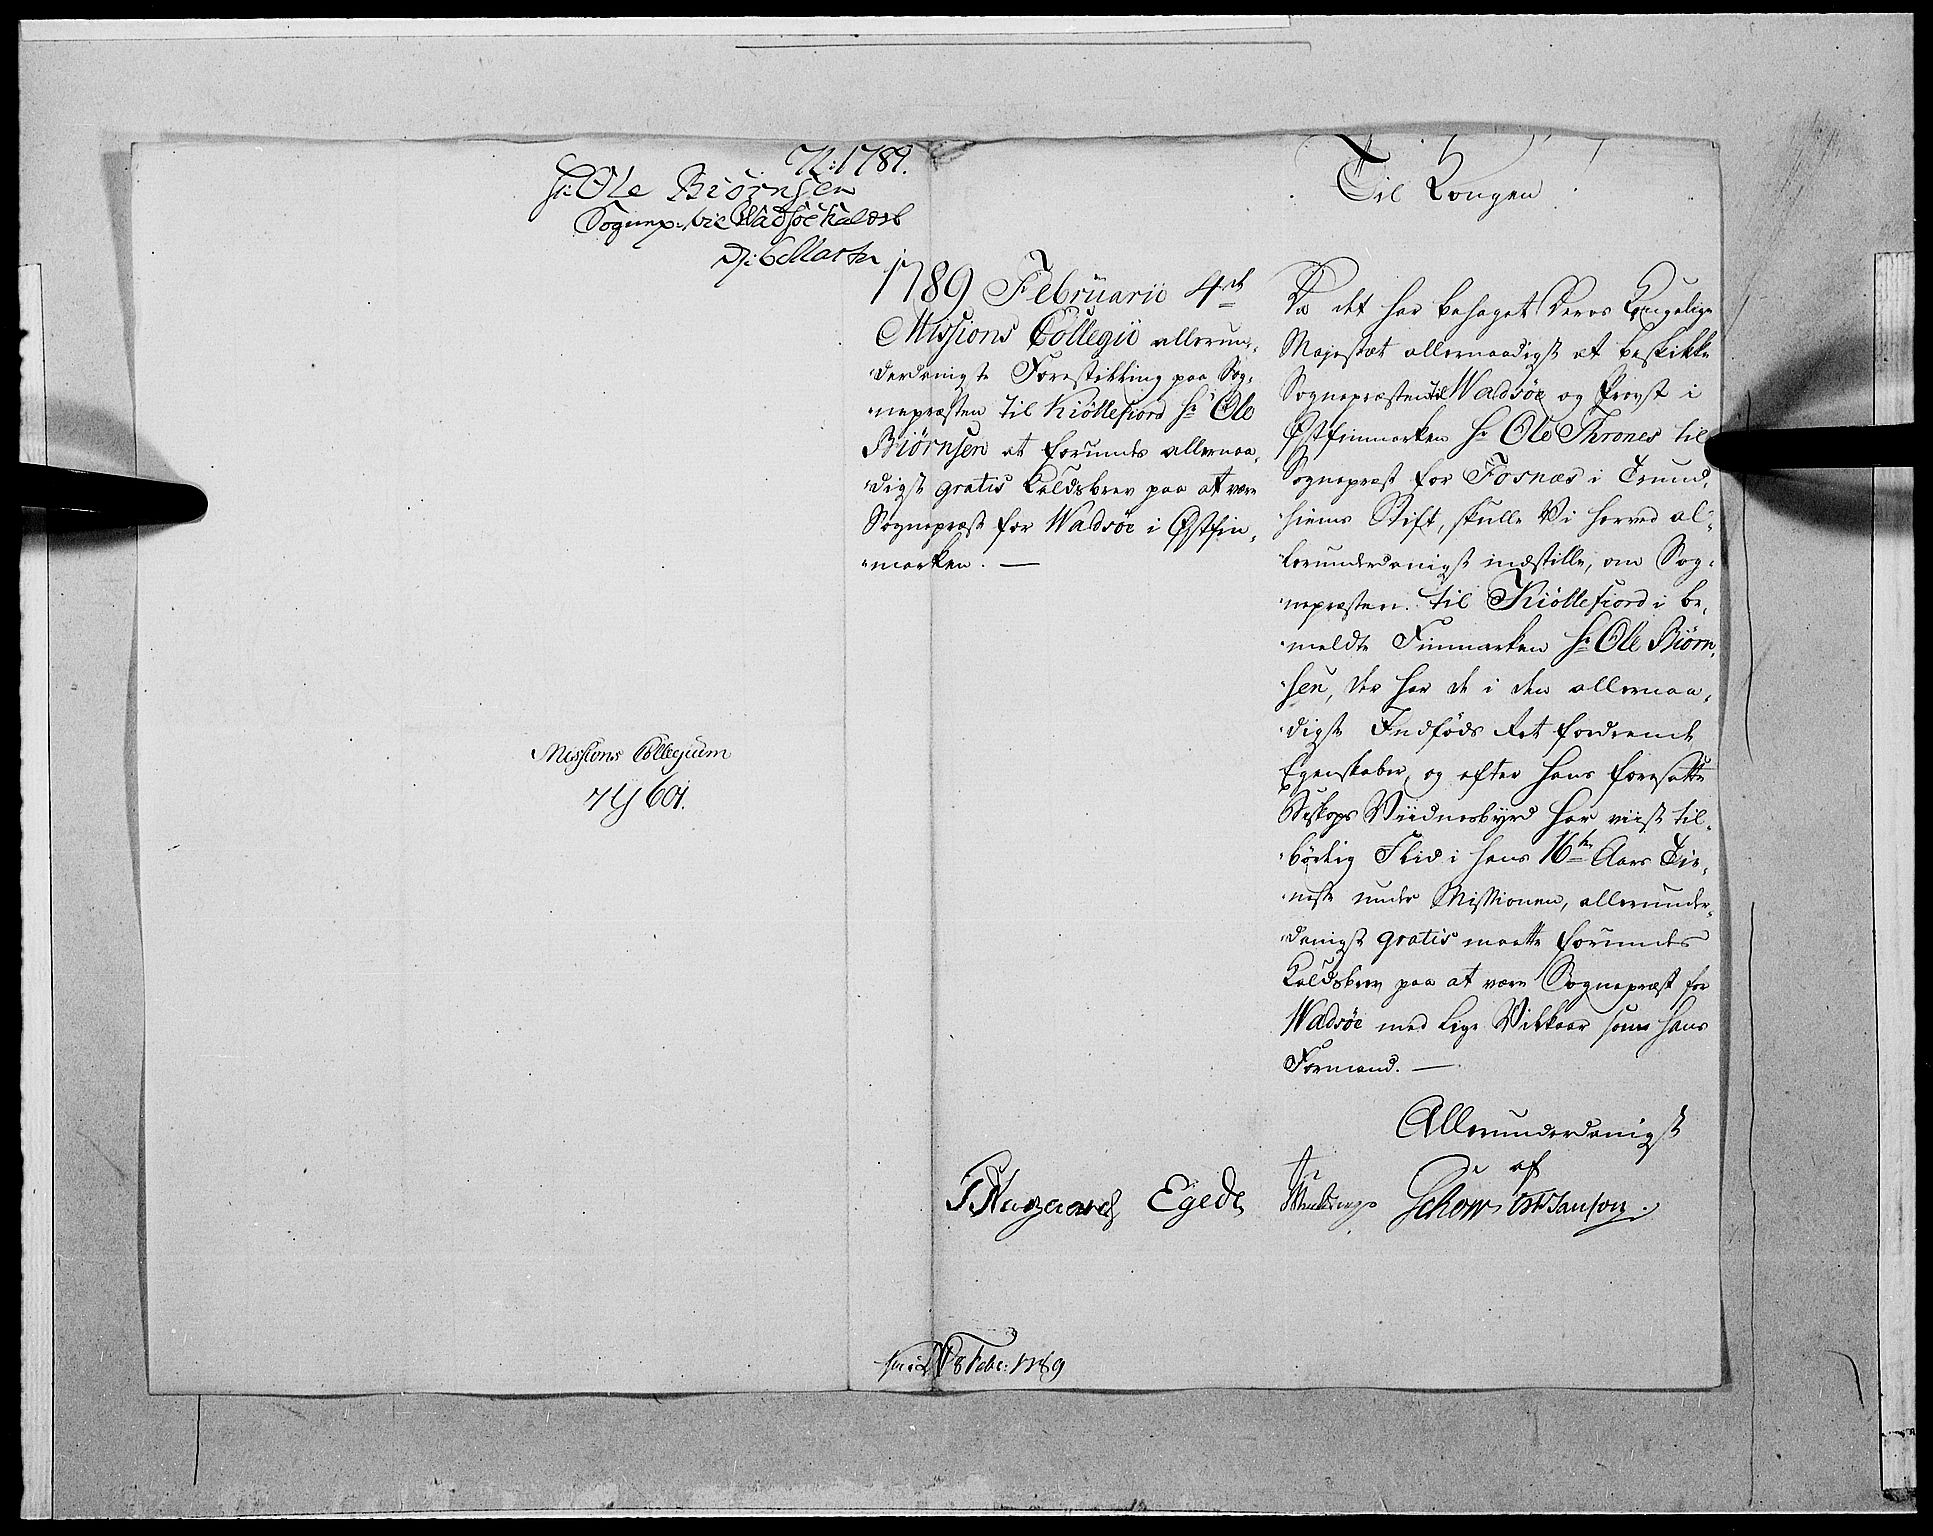 72: 1789.
Hr: Ole Biörnsen
Sognep: til Wadsöe Kaldsb
D: 6 Martz
Missions Collegium
74 601.
1789 Februarii 4de
Missions Collegii allerun,
,derdanigste Forestilling paa Sog,
,nepræsten til Kiöllefiord Hr Ole
Biörnsen at forundes allernaa,
,digst gratis Kaldsbrev paa at være
Sognepræst for Wadsöe i Østfin,
,marken. —
Til Kongen
Da det har behaget Deres Kongelige
Majestæt allernaadigst at beskikke
Sognepræsten til Wadsöe og Provst i
Østfinmarken Hr Ole Thrones til
Sognepræst for Fosnæs i Trund,
,hiems Stift, skulle Vi herved al,
,lerunderdanigst indstille, om Sog,
,nepræsten til Kiöllefiord i be,
,meldte Finmarken Hr Ole Biörn,
,sen, der har de i den allernaa,
,digste Indföds Ret fordrende
Egenskaber, og efter hans foresatte
Biskops Vidnesbyrd har viist til,
,börlig Flid i hans 16ten Aars Tie,
,neste under Missionen, allerunder,
,danigst gratis maatte forundes
Kaldsbrev paa at være Sognepræst for
Wadsöe med lige Vilkaar som hans
Formand. —
Allerunderdanigst
af
Egede Schow Janson.
8 Febr: 1789